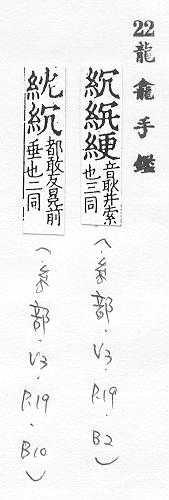 22 龍龕手鑑
紞紙綆音耿井索也三同
(糸部.V3.P.19.B2)
紞都敢反冕前垂也二同
(糸部.V3.P.19.B10)